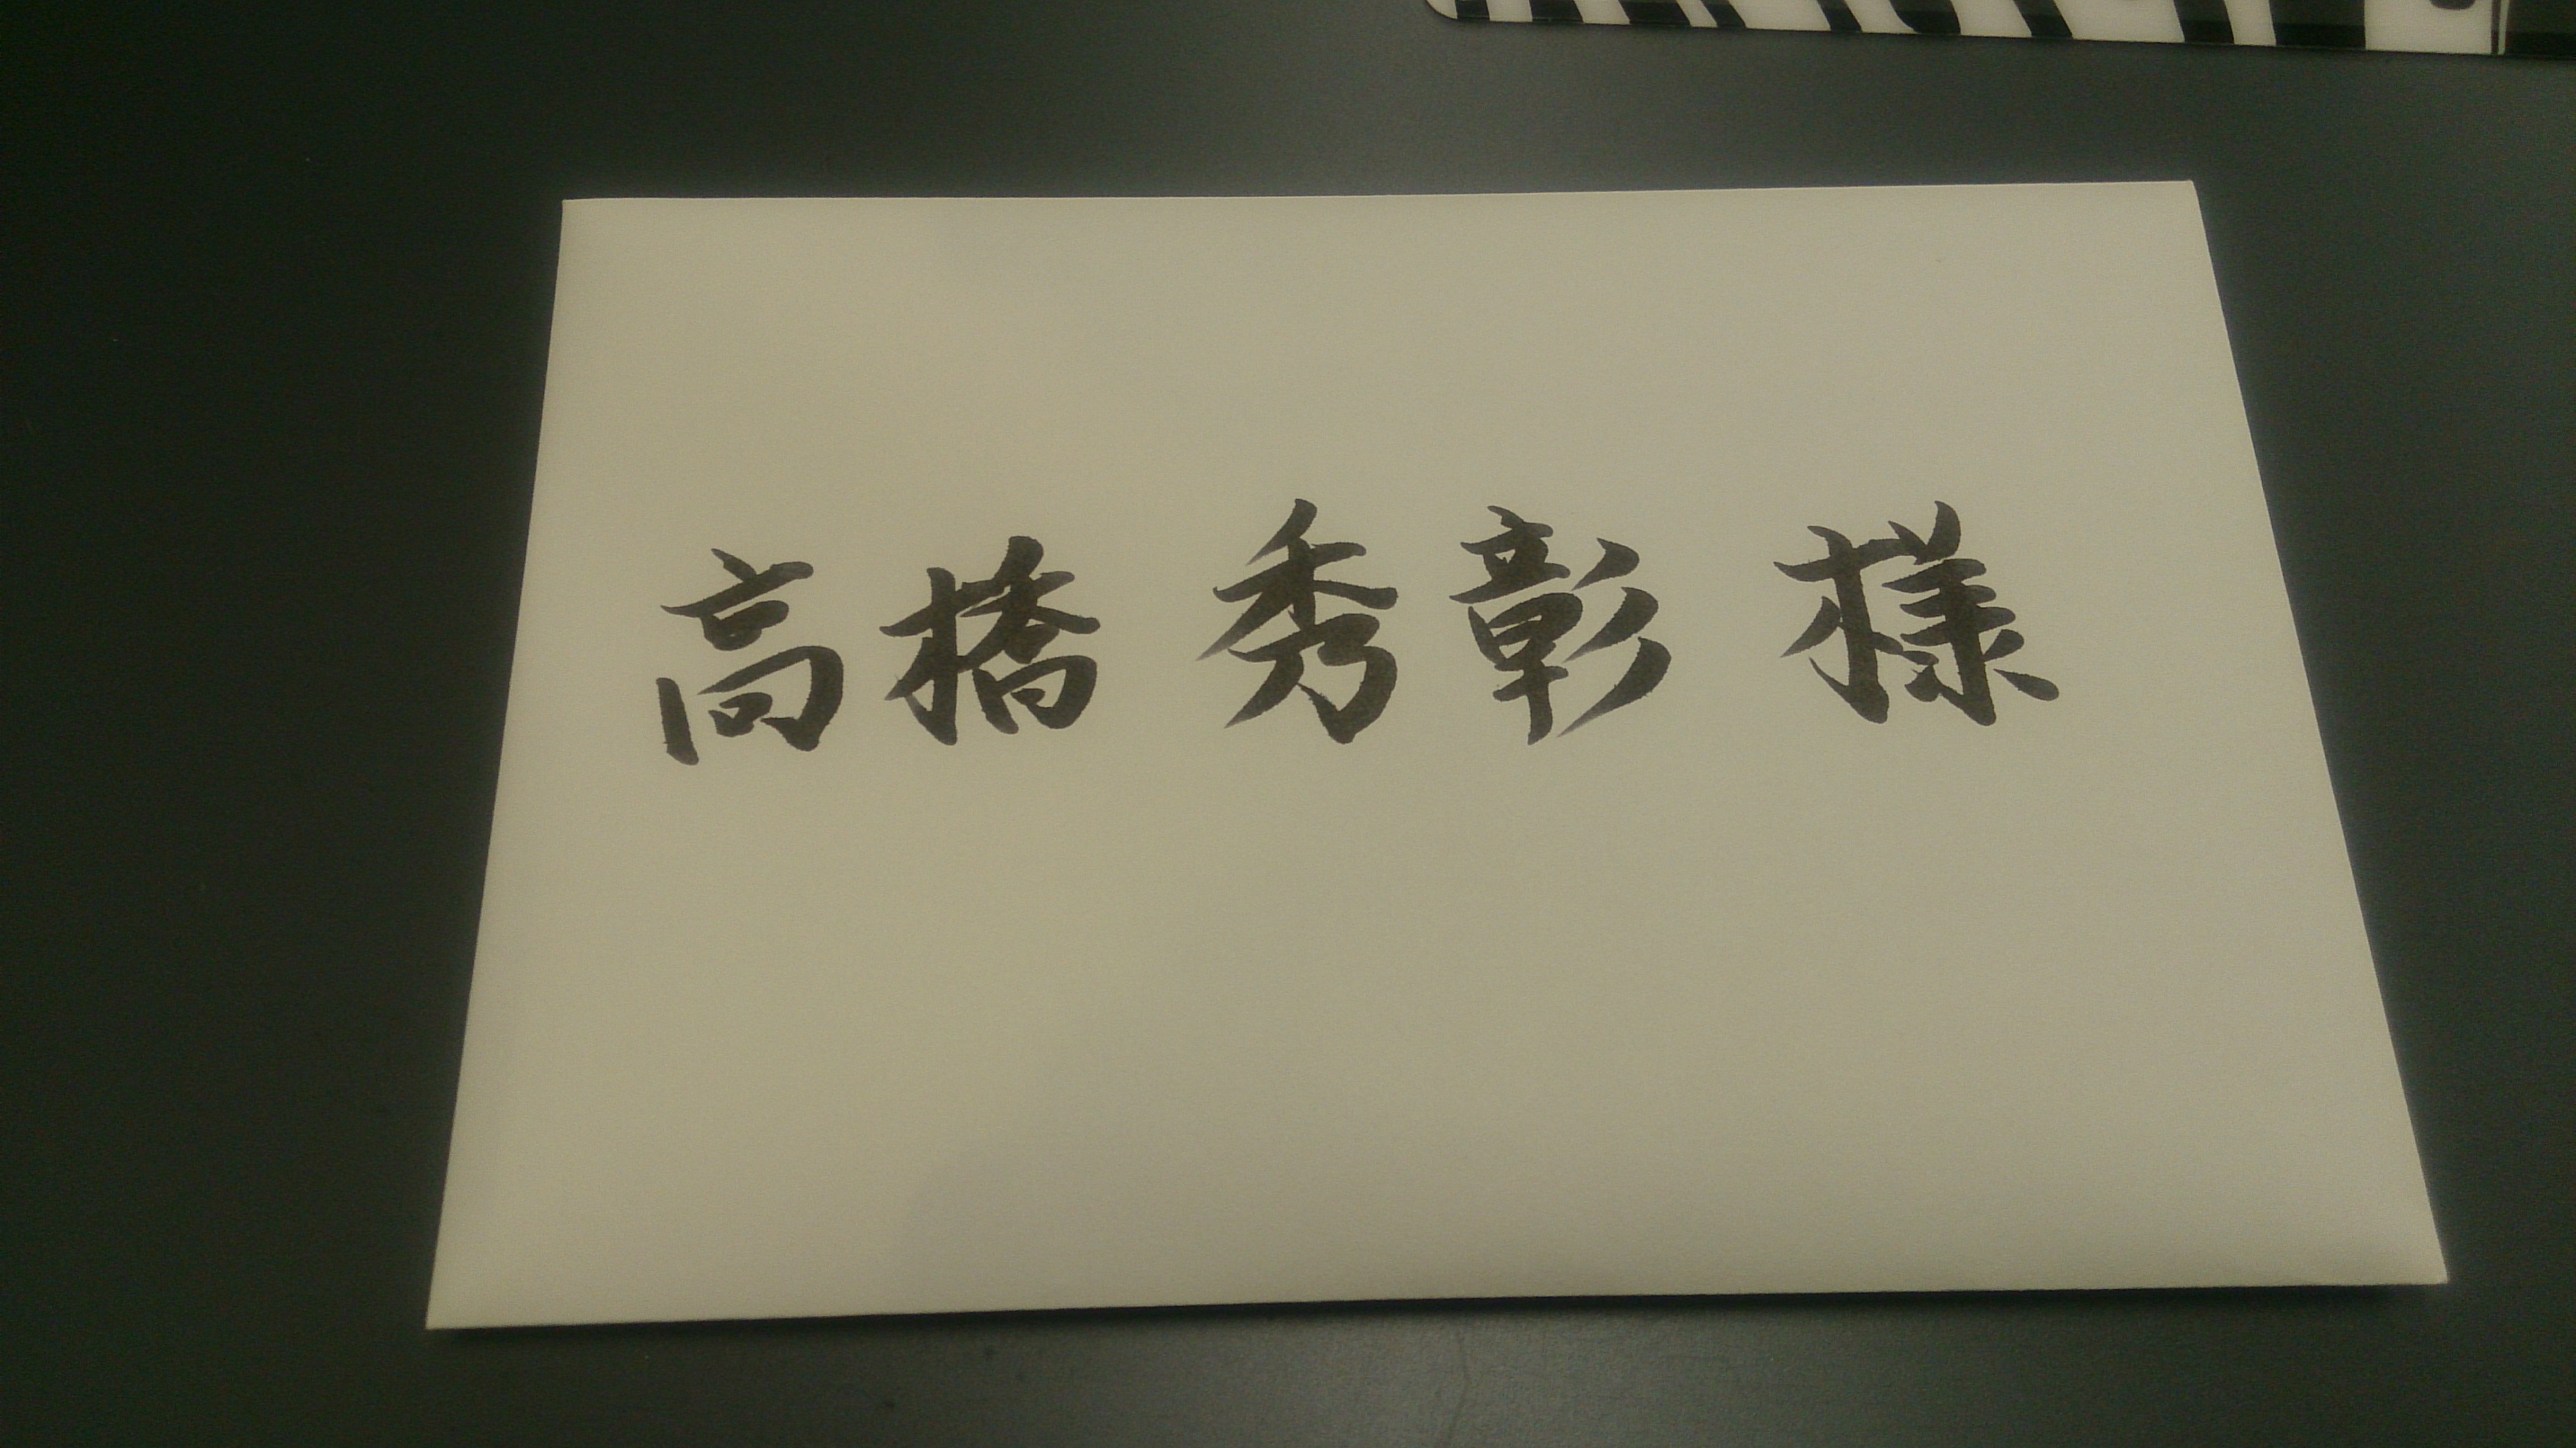 高橋 秀彰 様